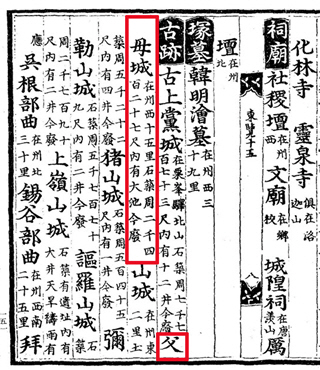 化林寺 靈泉寺 俱在洛迦山
祠廟 社稷壇 在州西 文廟 在鄕校 城隍祠 在唐羨山 厲
壇 在州北
東覽十五 八
塚墓 韓明澮墓 在州西三十九里
古跡 古上黨城 在栗峯驛北山石築周七千七百七十三尺內有十二井今廢 父
母城 在州西十五里石築周二千四百二十七尺內有大池今廢 山城 在州東二里土
築周五千二十二尺內有四井今廢 猪山城 石築周五百四十五尺內有一井今廢 彌
勒山城 石築周五千七百七十九尺內有二井今廢 謳羅山城 石築
周二千七百九十尺內有二井今廢 上嶺山城 石築有遺址內有大井天旱禱雨有
應 吳根部曲 在州北 錫谷部曲 在州西南 拜